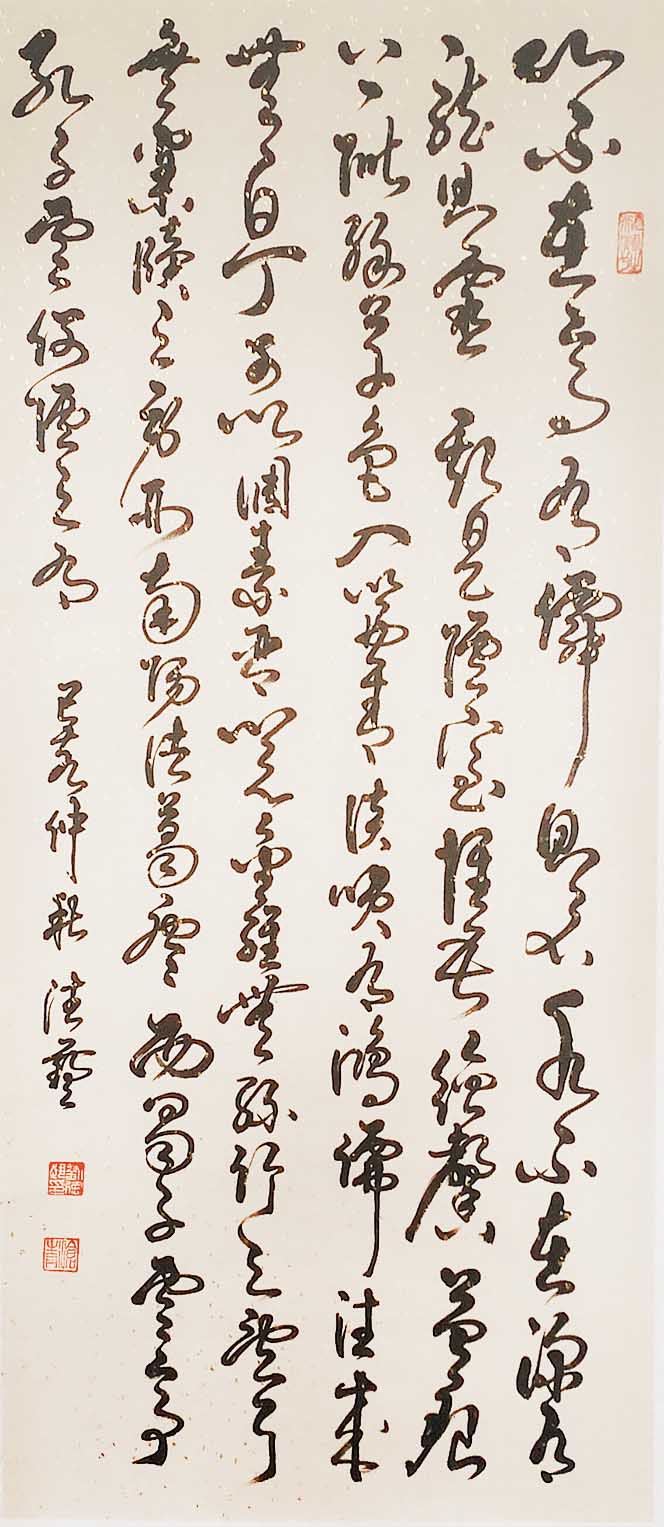 山不在高有僊則名水不在深有
龍則靈斯是陋室惟吾德馨苔痕
上階綠草色入簾青談笑有鴻儒往來
無白丁可以調素琴閱金經無絲竹之亂耳
無案牘之勞形南陽諸葛廬西蜀子雲亭
孔子雲何陋之有 己亥仲秋